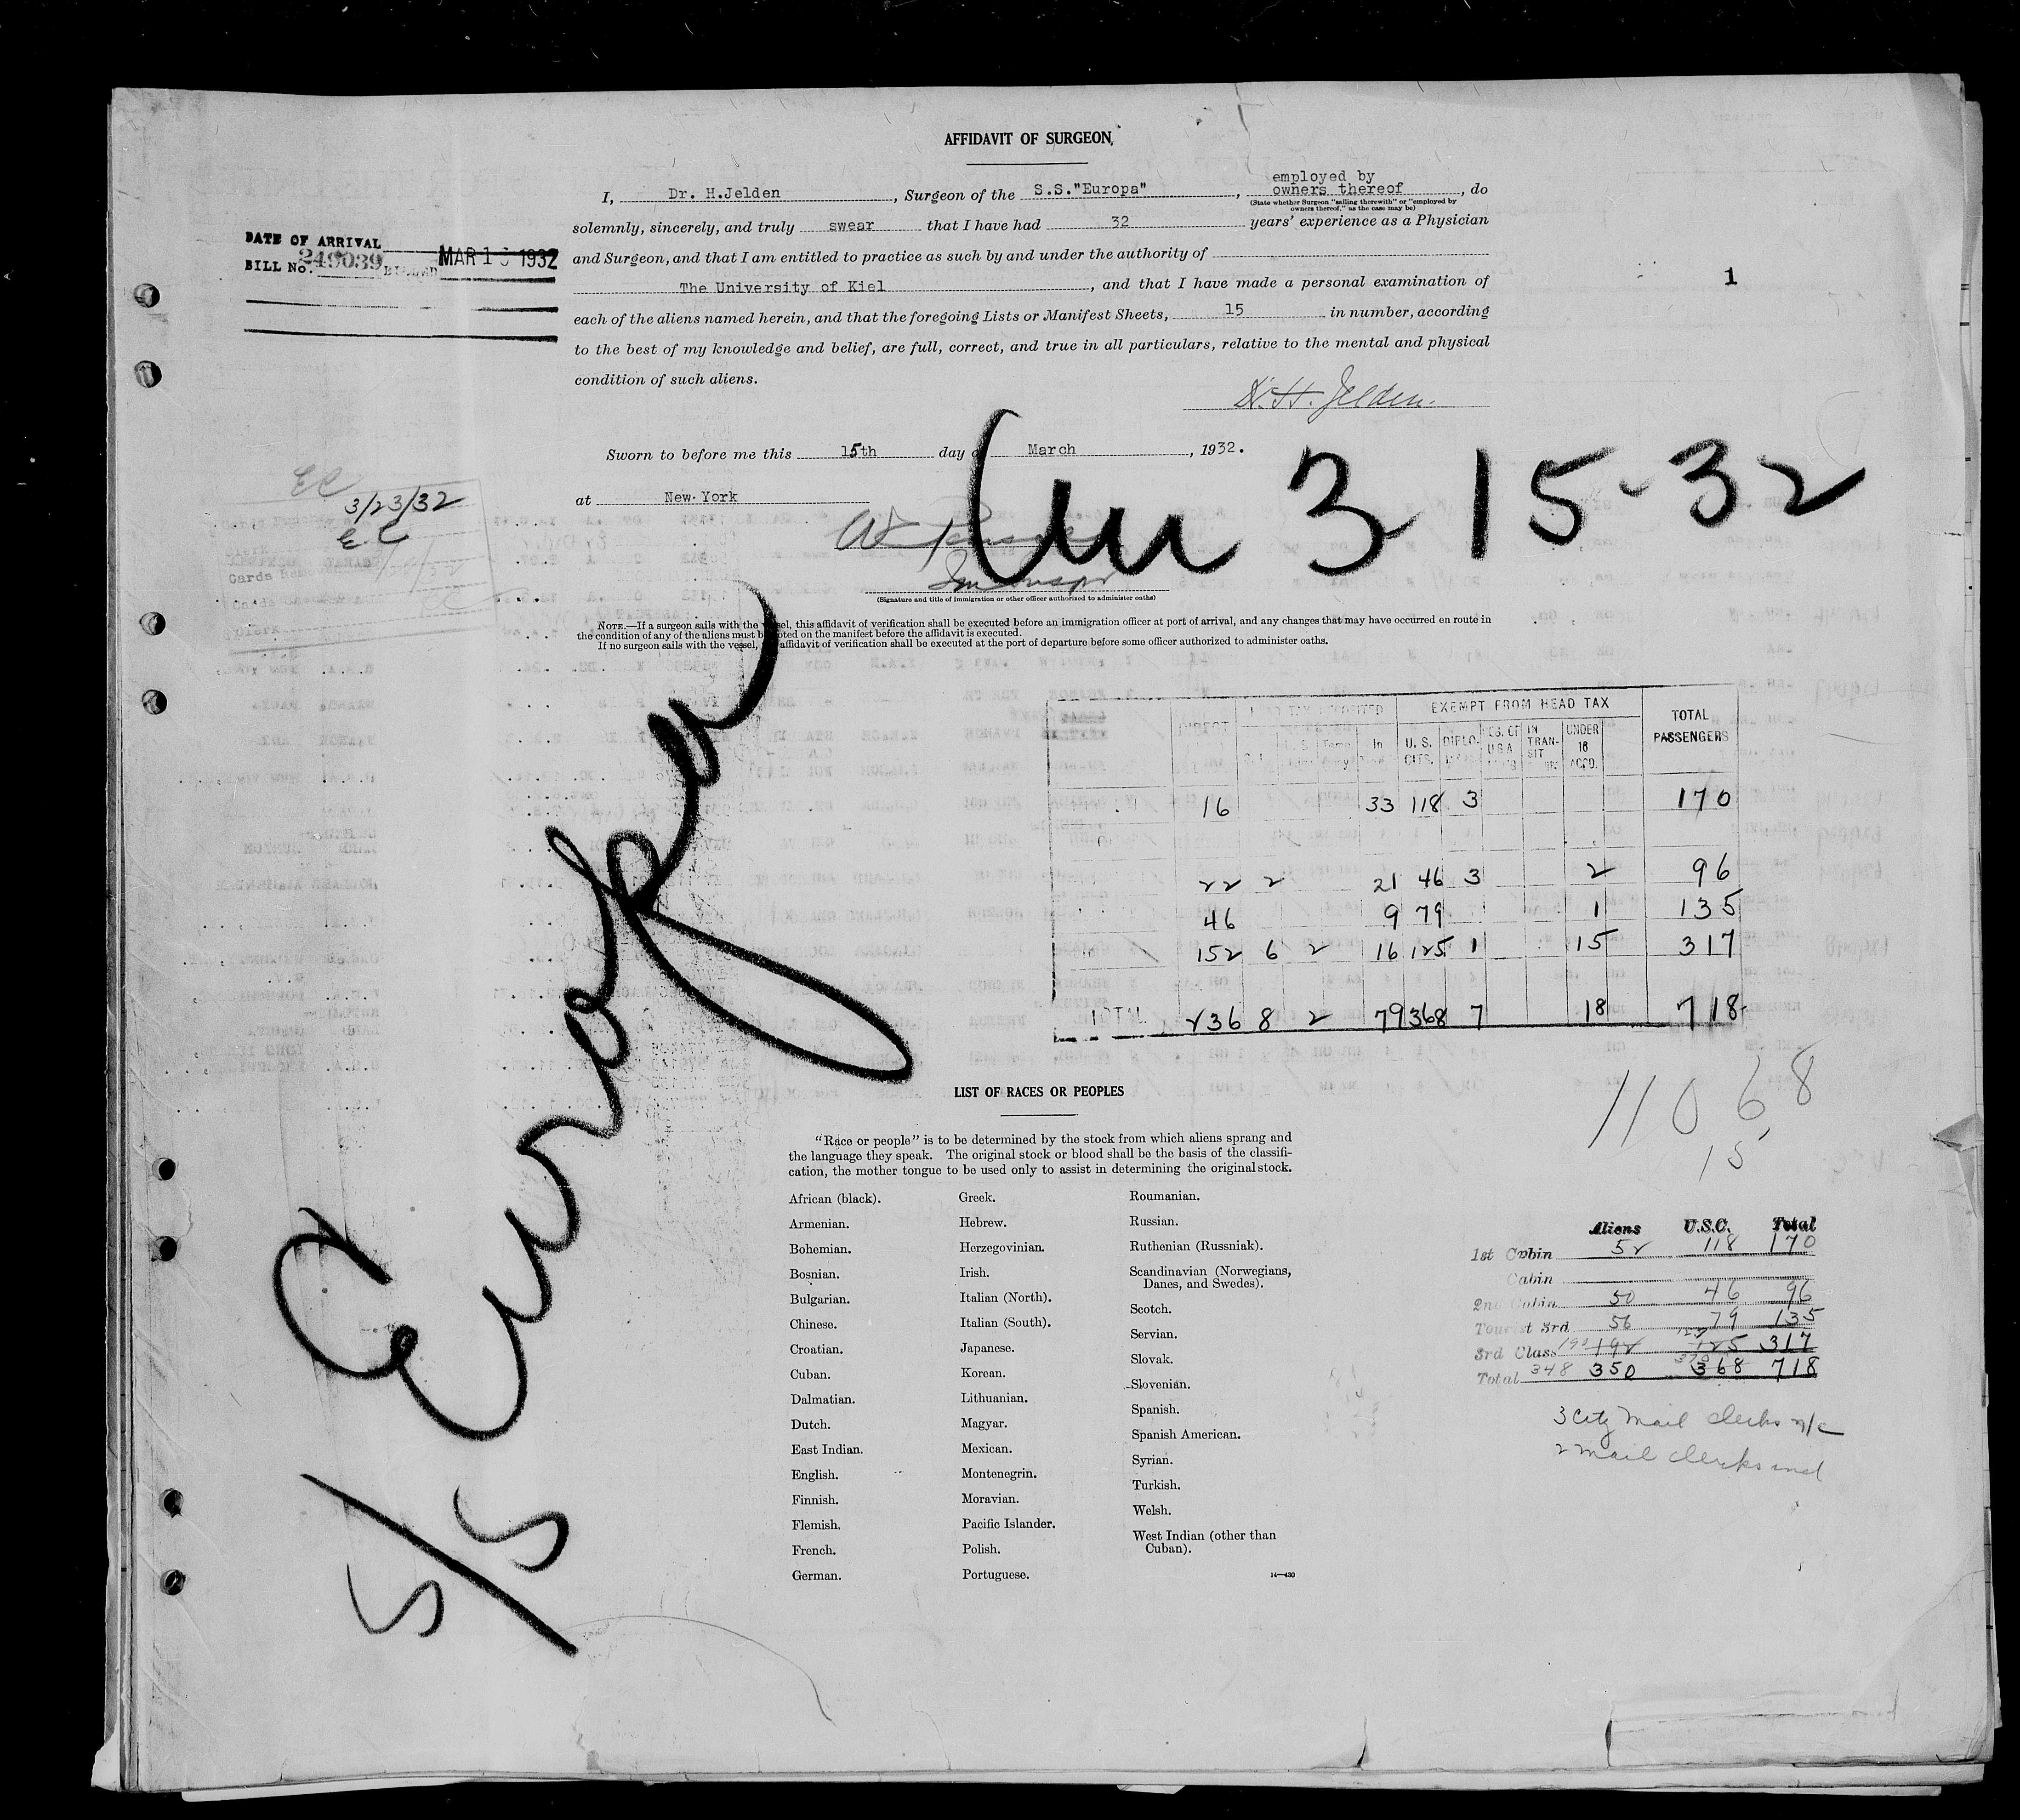 AFFIDAVIT OF SURGEON
I, Dr. H.Jelden, Surgeon of the S.S."Europa", employed by owners thereof, do
(State whether Surgeon "sailing therewith" or "employed by owners thereof," as the case may be)
solemnly, sincerely, and truly swear that I have had 32 years' experience as a Physician
and Surgeon, and that I am entitled to practice as such by and under the authority of
The University of Kiel, and that I have made a personal examination of
each of the aliens named herein, and that the foregoing Lists or Manifest Sheets, 15 in number, according
to the best of my knowledge and belief, are full, correct, and true in all particulars, relative to the mental and physical
condition of such aliens.
Dr. H. Jelden.
DATE OF ARRIVAL MAR 15 1932
BILL No. 249039 BILLED
1
Sworn to before me this 15th day of March, 1932.
at New York
3 15-32
EC
3/23/32
E.C
(Signature and title of immigration or other officer authorized to administer oaths)
NOTE.—If a surgeon sails with the vessel, this affidavit of verification shall be executed before an immigration officer at port of arrival, and any changes that may have occurred en route in
the condition of any of the aliens must be noted on the manifest before the affidavit is executed.
If no surgeon sails with the vessel, affidavit of verification shall be executed at the port of departure before some officer authorized to administer oaths.
S/S Europa
DIRECT HEAD TAX DEPOSITED EXEMPT FROM HEAD TAX TOTAL PASSENGERS
In U.S. CITS. DIPLO. IN TRANSIT UNDER 16 ACCD.
16 33 118 3 170
22 2 21 46 3 2 96
46 9 79 1 135
152 6 2 16 125 1 15 317
TOTAL 236 8 2 79 368 7 18 718
11068
15
LIST OF RACES OR PEOPLES
"Race or people" is to be determined by the stock from which aliens sprang and
the language they speak. The original stock or blood shall be the basis of the classifi-
cation, the mother tongue to be used only to assist in determining the original stock.
African (black).
Armenian.
Bohemian.
Bosnian.
Bulgarian.
Chinese.
Croatian.
Cuban.
Dalmatian.
Dutch.
East Indian.
English.
Finnish.
Flemish.
French.
German.
Greek.
Hebrew.
Herzegovinian.
Irish.
Italian (North).
Italian (South).
Japanese.
Korean.
Lithuanian.
Magyar.
Mexican.
Montenegrin.
Moravian.
Pacific Islander.
Polish.
Portuguese.
Roumanian.
Russian.
Ruthenian (Russniak).
Scandinavian (Norwegians,
Danes, and Swedes).
Scotch.
Servian.
Slovak.
Slovenian.
Spanish.
Spanish American.
Syrian.
Turkish.
Welsh.
West Indian (other than
Cuban).
14—430
Aliens U.S.C. Total
1st Cabin 52 118 170
Cabin
2nd Cabin 50 46 96
Tourist 3rd 56 79 135
3rd Class 190 192 127 125 317
Total 348 350 370 368 718
3 City Mail Clerks n/c
2 Mail Clerks incl